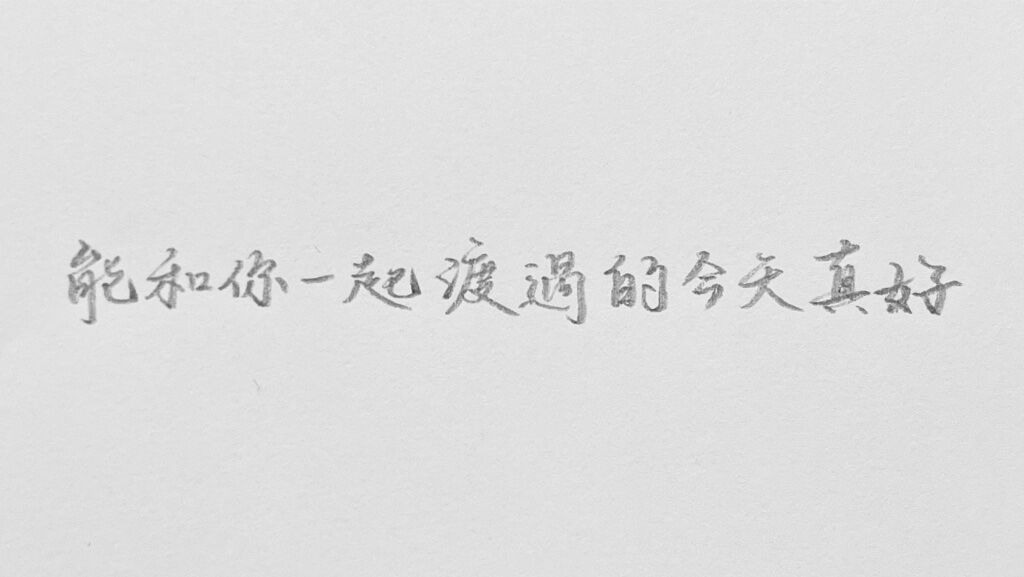 能和你一起渡過的今天真好